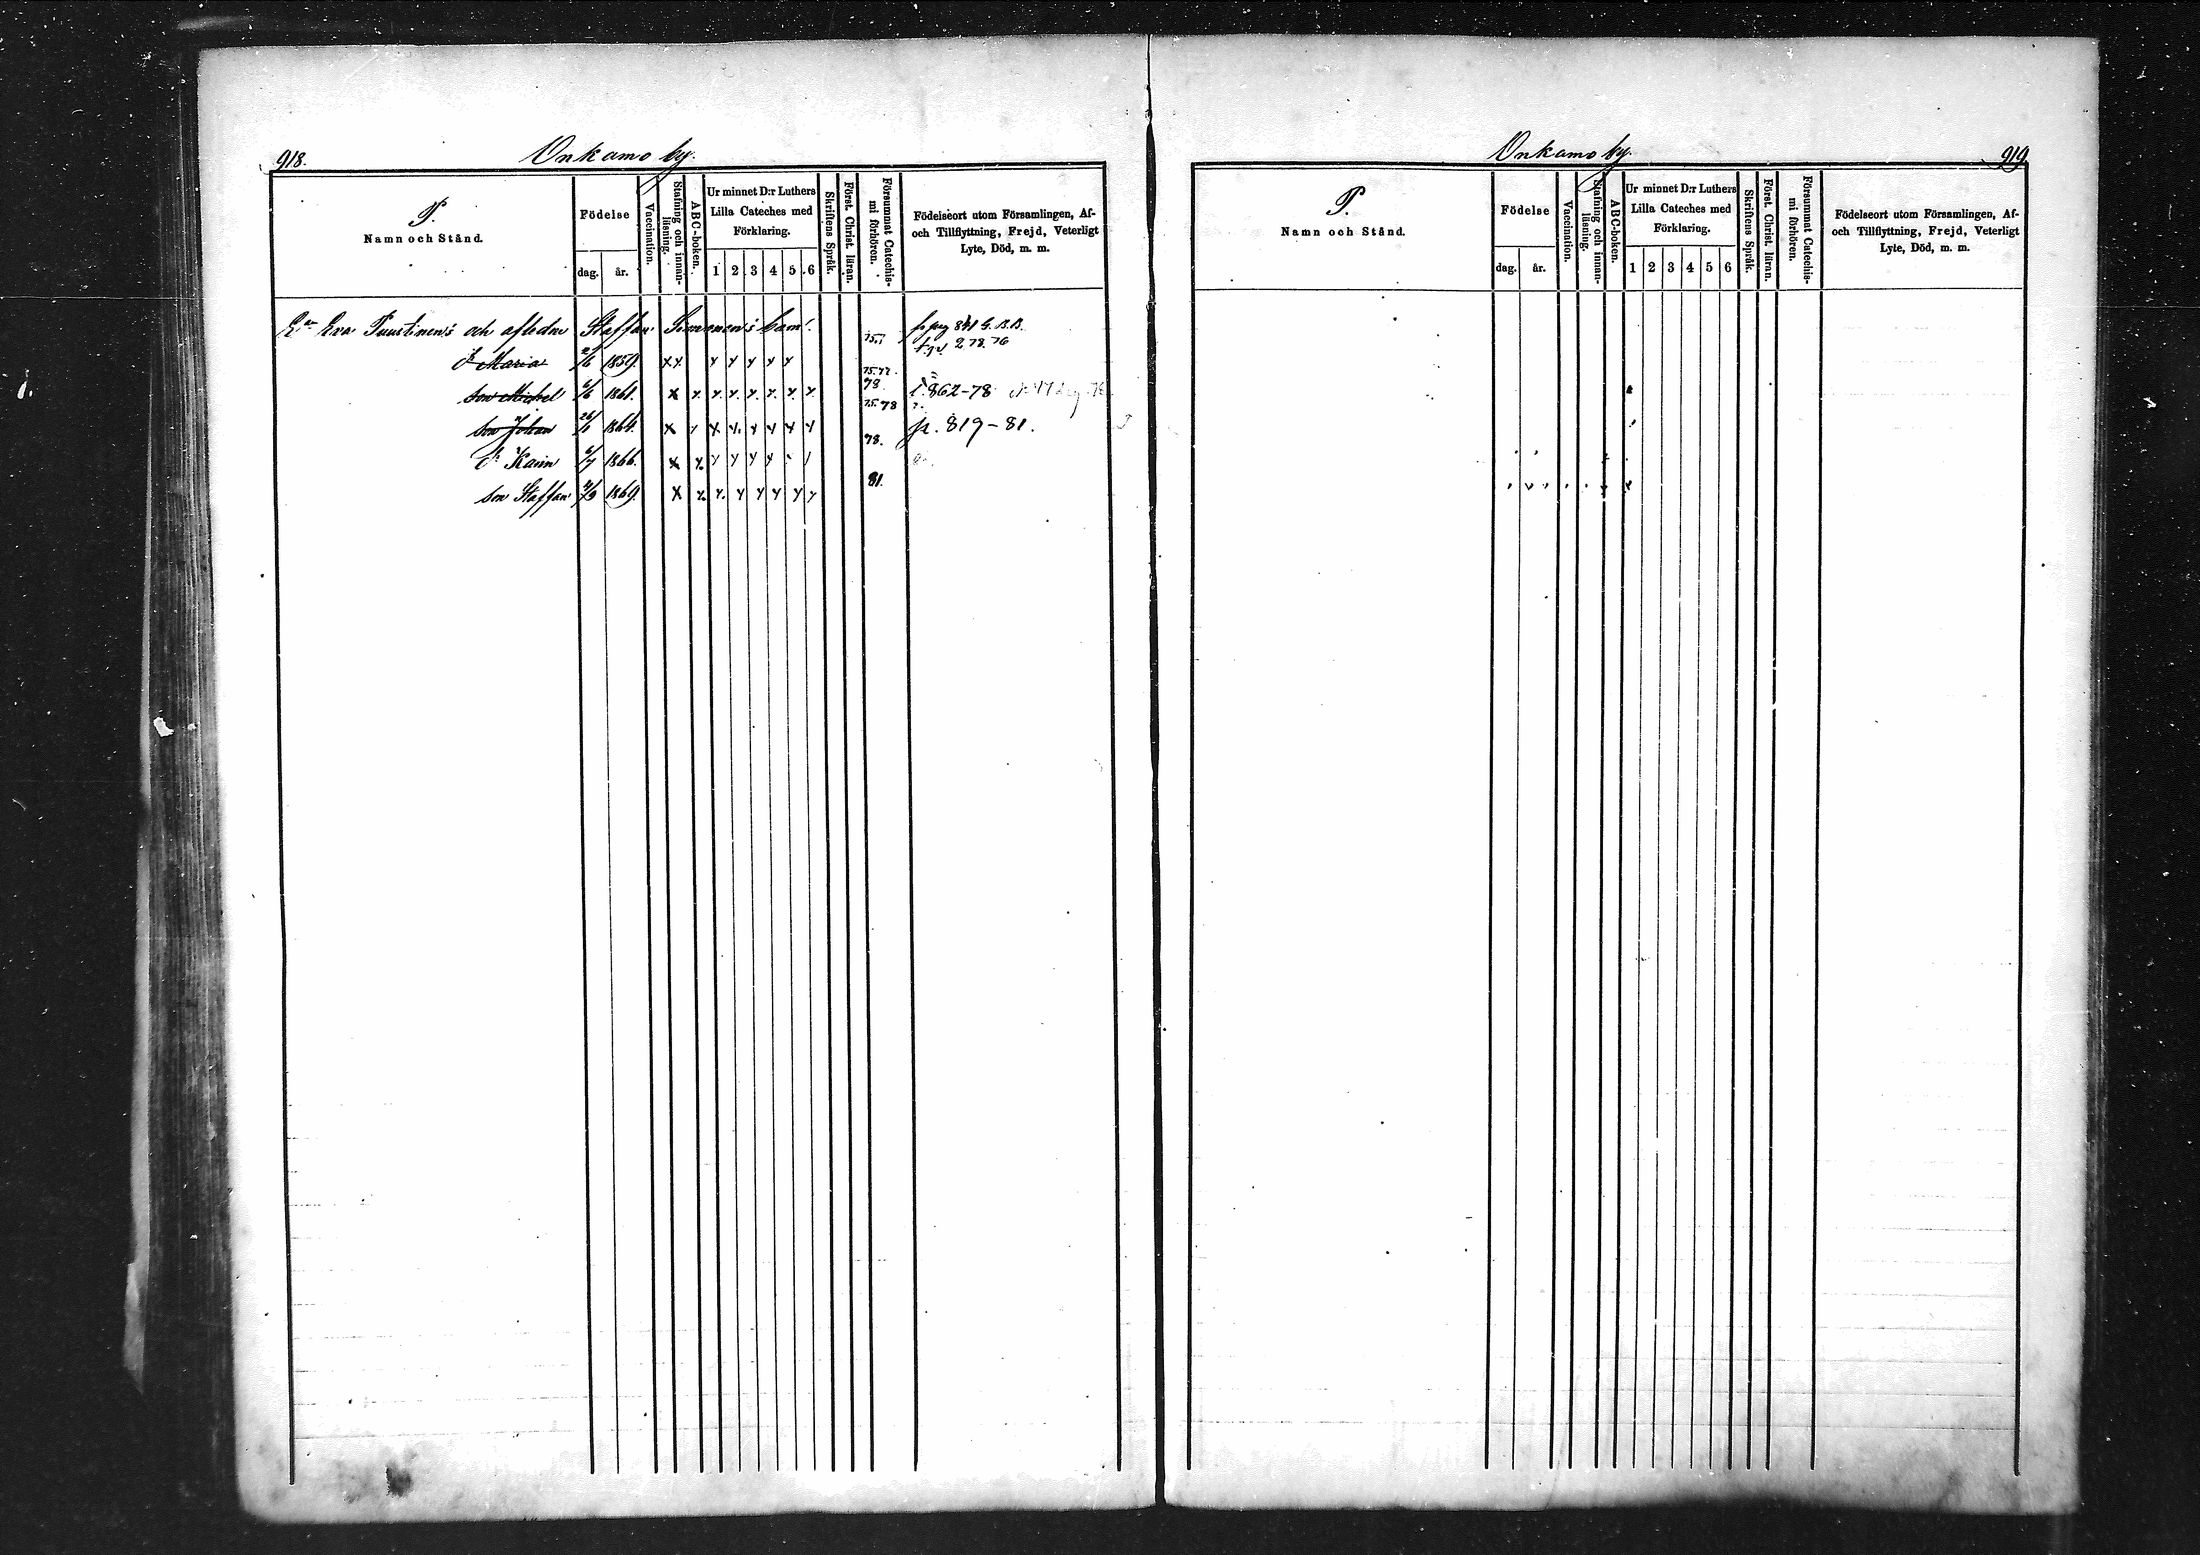 918.
Onkamo by.
P.
Namn och Stånd.
Födelse
dag. år.
Vaccination.
Stafning och innan-
läsning.
ABC-boken.
Ur minnet D:r Luthers
Lilla Cateches med
Förklaring.
1 2 3 4 5 6
Skriftens Språk.
Först. Christ. läran.
Försummat Catechis-
mi förhören.
Födelseort utom Församlingen, Af-
och Tillflyttning, Frejd, Veterligt
Lyte, Död, m. m.
E:an Eva Puustinen's och aflednе Staffan Simonen's barn:
D. Maria 1859. x x. x x x x x 75.77
son Michel 6/6 1861. x x. x. x. x. x. x. x. 75.77. 78 862-78
son Johan 26/1 1864. x x x x. x x x x 75. 78 p. 819-81.
D: Karin 6/7 1866. x x. x x x x 78.
son Staffan 1869. x x. x. x x x x x 81.
Onkamo by.
919
P.
Namn och Stånd.
Födelse
dag. år.
Vaccination.
Stafning och innan-
läsning.
ABC-boken.
Ur minnet D:r Luthers
Lilla Cateches med
Förklaring.
1 2 3 4 5 6
Skriftens Språk.
Först. Christ. läran.
Försummat Catechis-
mi förhören.
Födelseort utom Församlingen, Af-
och Tillflyttning, Frejd, Veterligt
Lyte, Död, m. m.